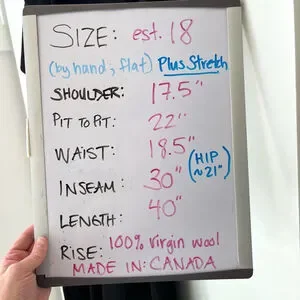 SIZE: est. 18
(by hand, flat) Plus Stretch
SHOULDER: 17.5"
PIT TO PIT: 22"
WAIST: 18.5" (HIP ~21")
INSEAM: 30"
LENGTH: 40"
RISE: 100% Virgin wool
MADE IN: CANADA